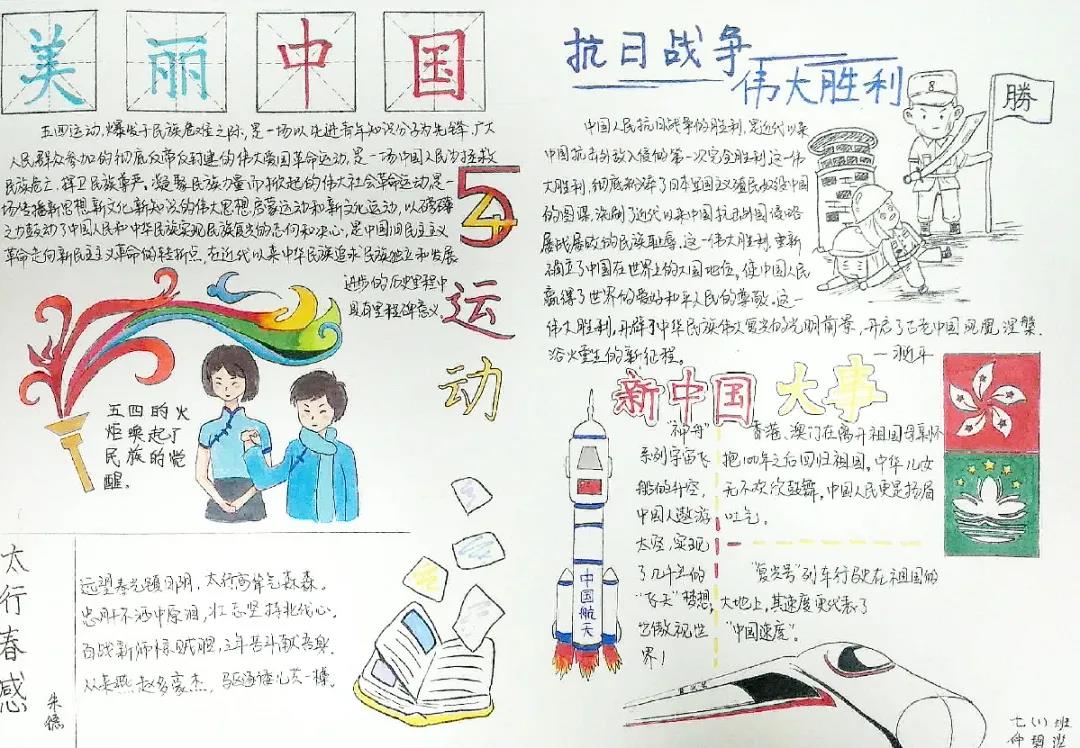 美丽中国
五四运动,爆发于民族危难之际,是一场以先进青年知识分子为先锋、广大
人民群众参加的彻底反帝反封建的伟大爱国革命运动,是一场中国人民为拯救
民族危亡、捍卫民族尊严、凝聚民族力量而掀起的伟大社会革命运动,是一
场传播新思想新文化新知识的伟大思想启蒙运动和新文化运动,以磅礴
之力鼓动了中国人民和中华民族实现民族复兴的志向和决心,是中国旧民主主义
革命走向新民主主义革命的转折点,在近代以来中华民族追求民族独立和发展
进步的历史进程中
具有里程碑意义。
54
运动
五四的火
炬唤起了
民族的觉
醒。
太行春感
朱德
远望春光镇日阴,太行高耸气森森。
忠肝不洒中原泪,壮志坚持北伐心。
百战新师惊贼胆,三年苦斗献吾身。
从来燕赵多豪杰,驱逐倭儿共一樽。
抗日战争
伟大胜利
勝
中国人民抗日战争的胜利,是近代以来
中国抗击外敌入侵的第一次完全胜利这一伟
大胜利,彻底粉碎了日本军国主义殖民奴役中国
的图谋,洗刷了近代以来中国抗击外国侵略
屡战屡败的民族耻辱。这一伟大胜利,重新
确立了中国在世界上的大国地位,使中国人民
赢得了世界爱好和平人民的尊敬。这一
伟大胜利,开辟了中华民族伟大复兴的光明前景,开启了古老中国凤凰涅槃、
浴火重生的新征程。
—习近平
新中国大事
"神舟"
系列宇宙飞
船的升空,
中国人遨游
太空,实现
了几千年的
"飞天"梦想,
当傲视世
界!
香港、澳门在离开祖国母亲怀
抱100年之后回归祖国。中华儿女
无不欢欣鼓舞,中国人民更是扬眉
吐气。
"复兴号"列车行驶在祖国的
大地上,其速度更代表了
"中国速度"。
中国航天
复兴号
七(1)班